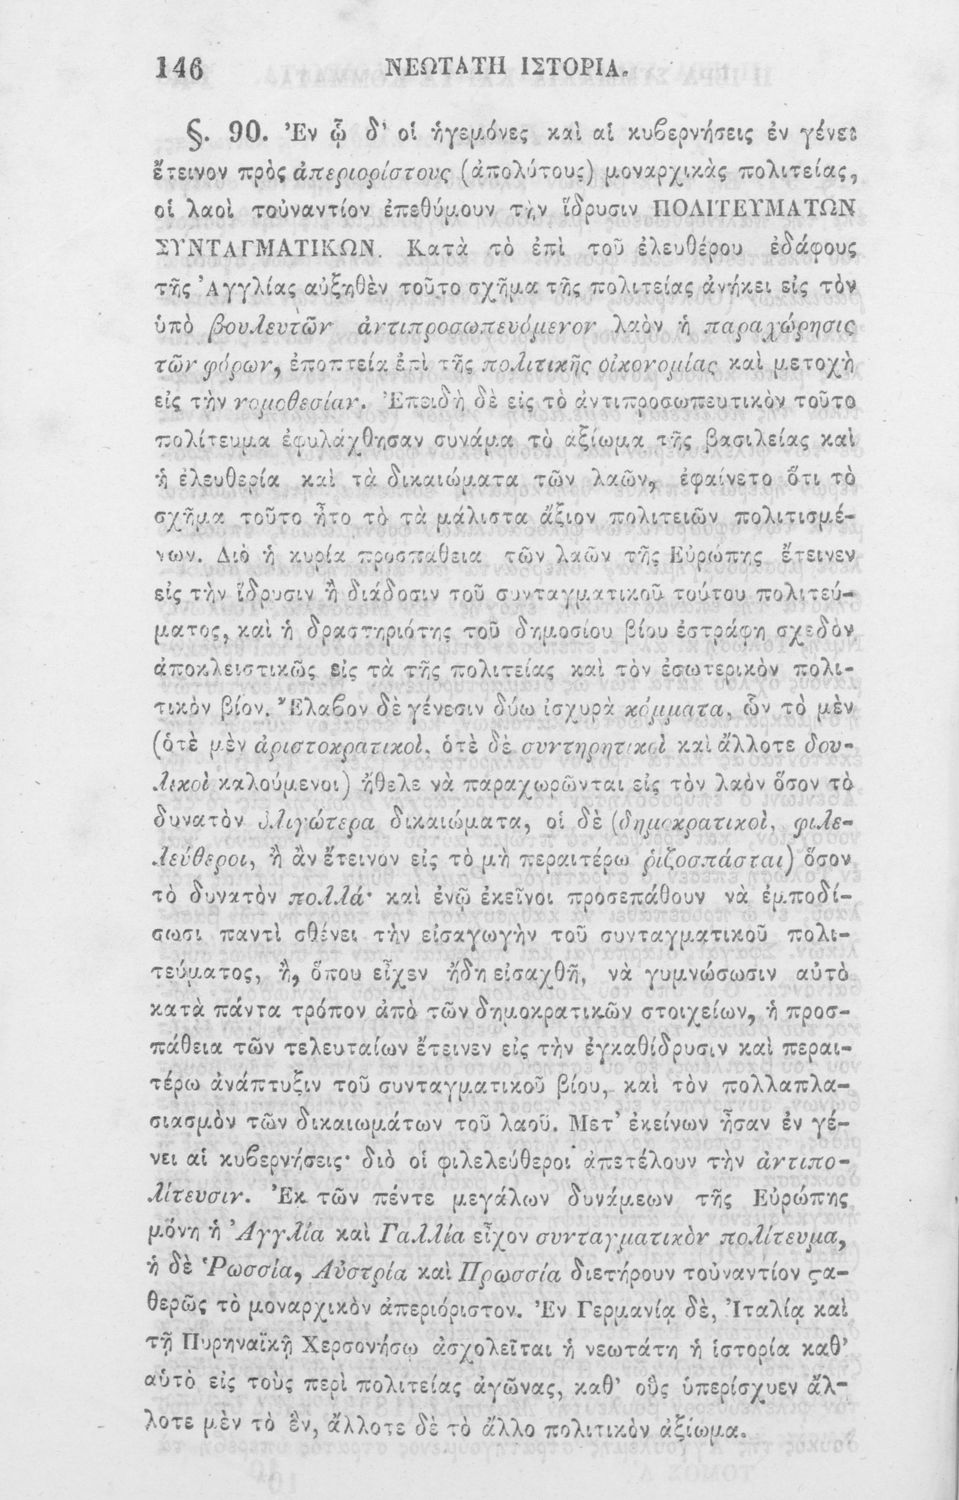 146 ΝΕΩΤΑΤΗ ΙΣΤΟΡΙΑ.
§. 90. Ἐν ᾧ δ' οἱ ἡγεμόνες καὶ αἱ κυβερνήσεις ἐν γένει
ἔτεινον πρὸς ἀπεριορίστους (ἀπολύτους) μοναρχικὰς πολιτείας,
οἱ λαοὶ τοὐναντίον ἐπεθύμουν τὴν ἵδρυσιν ΠΟΛΙΤΕΥΜΑΤΩΝ
ΣΥΝΤΑΓΜΑΤΙΚΩΝ. Κατὰ τὸ ἐπὶ τοῦ ἐλευθέρου ἐδάφους
τῆς Ἀγγλίας αὐξηθὲν τοῦτο σχῆμα τῆς πολιτείας ἀνήκει εἰς τὸν
ὑπὸ βουλευτῶν ἀντιπροσωπευόμενον λαὸν ἡ παραχώρησις
τῶν φόρων, ἐποπτεία ἐπὶ τῆς πολιτικῆς οἰκονομίας καὶ μετοχὴ
εἰς τὴν νομοθεσίαν. Ἐπειδὴ δὲ εἰς τὸ ἀντιπροσωπευτικὸν τοῦτο
πολίτευμα ἐφυλάχθησαν συνάμα τὸ ἀξίωμα τῆς βασιλείας καὶ
ἡ ἐλευθερία καὶ τὰ δικαιώματα τῶν λαῶν, ἐφαίνετο ὅτι τὸ
σχῆμα τοῦτο ἦτο τὸ τὰ μάλιστα ἄξιον πολιτειῶν πολιτισμέ-
νων. Διὸ ἡ κυρία προσπάθεια τῶν λαῶν τῆς Εὐρώπης ἔτεινεν
εἰς τὴν ἵδρυσιν ἢ διάδοσιν τοῦ συνταγματικοῦ τούτου πολιτεύ-
ματος, καὶ ἡ δραστηριότης τοῦ δημοσίου βίου ἐστράφη σχεδὸν
ἀποκλειστικῶς εἰς τὰ τῆς πολιτείας καὶ τὸν ἐσωτερικὸν πολι-
τικὸν βίον. Ἔλαβον δὲ γένεσιν δύω ἰσχυρὰ κόμματα, ὧν τὸ μὲν
(ὁτὲ μὲν ἀριστοκρατικοὶ, ὁτὲ δὲ συντηρητικοὶ καὶ ἄλλοτε δου-
λικοὶ καλούμενοι) ἤθελε νὰ παραχωρῶνται εἰς τὸν λαὸν ὅσον τὸ
δυνατὸν ὀλιγώτερα δικαιώματα, οἱ δὲ (δημοκρατικοὶ, φιλε-
λεύθεροι, ἢ ἂν ἔτεινον εἰς τὸ μὴ περαιτέρω ῥιζοσπάσται) ὅσον
τὸ δυνατὸν πολλά· καὶ ἐνῷ ἐκεῖνοι προσεπάθουν νὰ ἐμποδί-
σωσι παντὶ σθένει τὴν εἰσαγωγὴν τοῦ συνταγματικοῦ πολι-
τεύματος, ἢ, ὅπου εἶχεν ἤδη εἰσαχθῆ, νὰ γυμνώσωσιν αὐτὸ
κατὰ πάντα τρόπον ἀπὸ τῶν δημοκρατικῶν στοιχείων, ἡ προσ-
πάθεια τῶν τελευταίων ἔτεινεν εἰς τὴν ἐγκαθίδρυσιν καὶ περαι-
τέρω ἀνάπτυξιν τοῦ συνταγματικοῦ βίου, καὶ τὸν πολλαπλα-
σιασμὸν τῶν δικαιωμάτων τοῦ λαοῦ. Μετ' ἐκείνων ἦσαν ἐν γέ-
νει αἱ κυβερνήσεις· διὸ οἱ φιλελεύθεροι ἀπετέλουν τὴν ἀντιπο-
λίτευσιν. Ἐκ τῶν πέντε μεγάλων δυνάμεων τῆς Εὐρώπης
μόνη ἡ Ἀγγλία καὶ Γαλλία εἶχον συνταγματικὸν πολίτευμα,
ἡ δὲ Ῥωσσία, Αὐστρία καὶ Πρωσσία διετήρουν τοὐναντίον ϛα-
θερῶς τὸ μοναρχικὸν ἀπεριόριστον. Ἐν Γερμανίᾳ δὲ, Ἰταλίᾳ καὶ
τῇ Πυρηναϊκῇ Χερσονήσῳ ἀσχολεῖται ἡ νεωτάτη ἡ ἱστορία καθ'
αὑτὸ εἰς τοὺς περὶ πολιτείας ἀγῶνας, καθ' οὓς ὑπερίσχυεν ἄλ-
λοτε μὲν τὸ ἓν, ἄλλοτε δὲ τὸ ἄλλο πολιτικὸν ἀξίωμα.